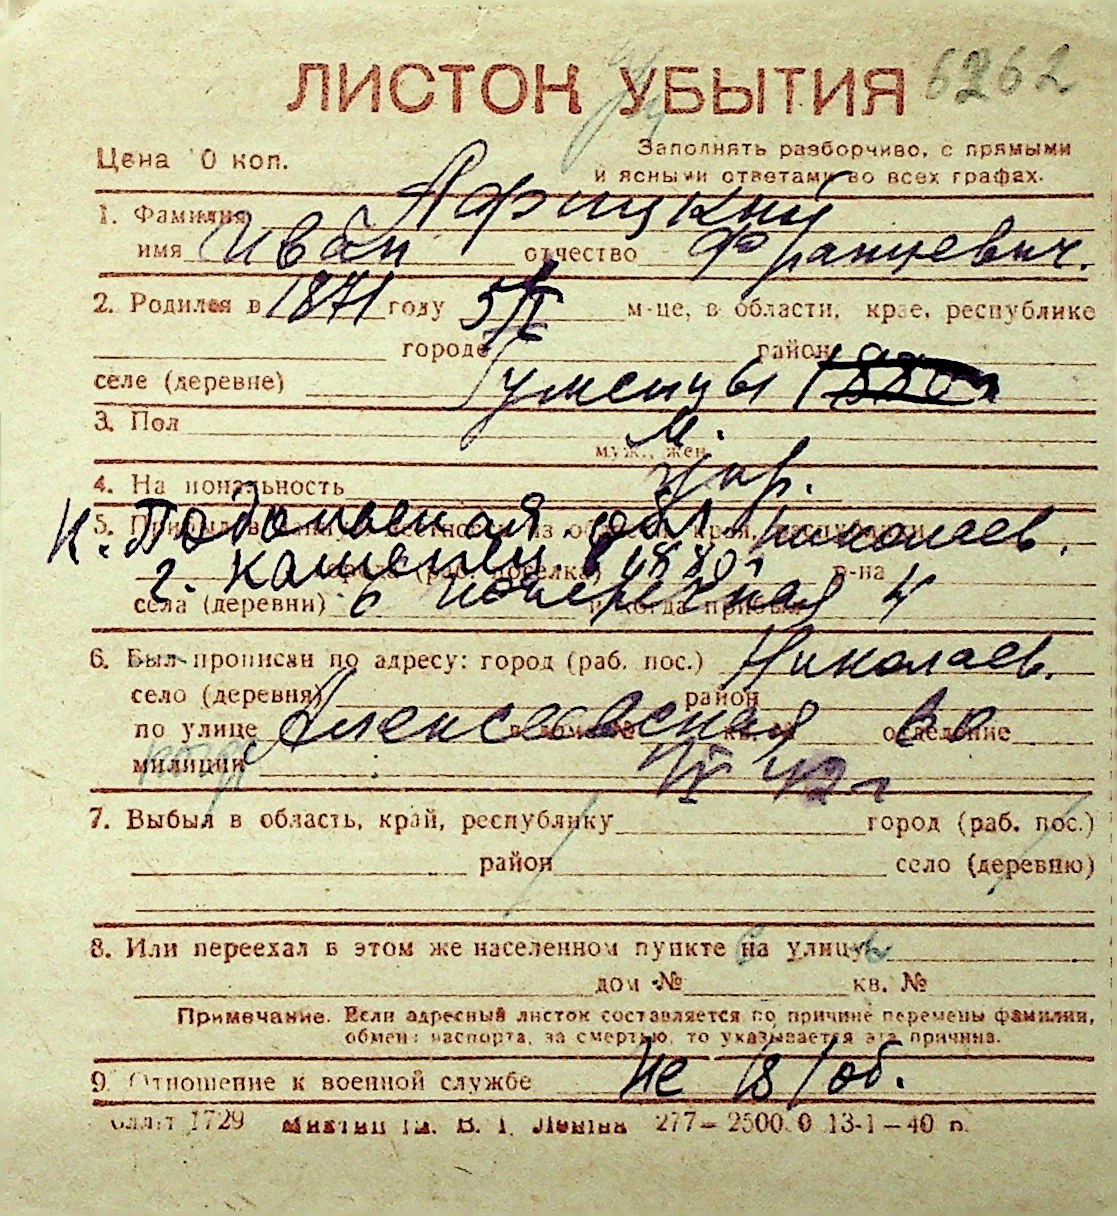 ЛИСТОК УБЫТИЯ 6262
Цена 10 коп.
Заполнять разборчиво, с прямыми
и ясными ответами во всех графах.
1. Фамилия Афицкий
имя Иван отчество Францевич.
2. Родился в 1871 году 5/X м-це, в области, крае, республике
городе район
селе (деревне) Гуменцы
3. Пол м.
муж., жен.
4. Национальность укр.
5. К. Подольская обл Николаев.
г. Каменец. в 1880г р-на
села (деревни) с 4
6. Был прописан по адресу: город (раб. пос.) Николаев.
село (деревня) район
по улице Алексеевская отделение
милиции 42г
7. Выбыл в область, край, республику город (раб. пос.)
район село (деревню)
8. Или переехал в этом же населенном пункте на улицу
дом № кв. №
Примечание. Если адресный листок составляется по причине перемены фамилии,
обмена паспорта, за смертью, то указывается эта причина.
9. Отношение к военной службе не в/об.
1729 им. В. І. Леніна 277—2500.0 13-1—40 р.